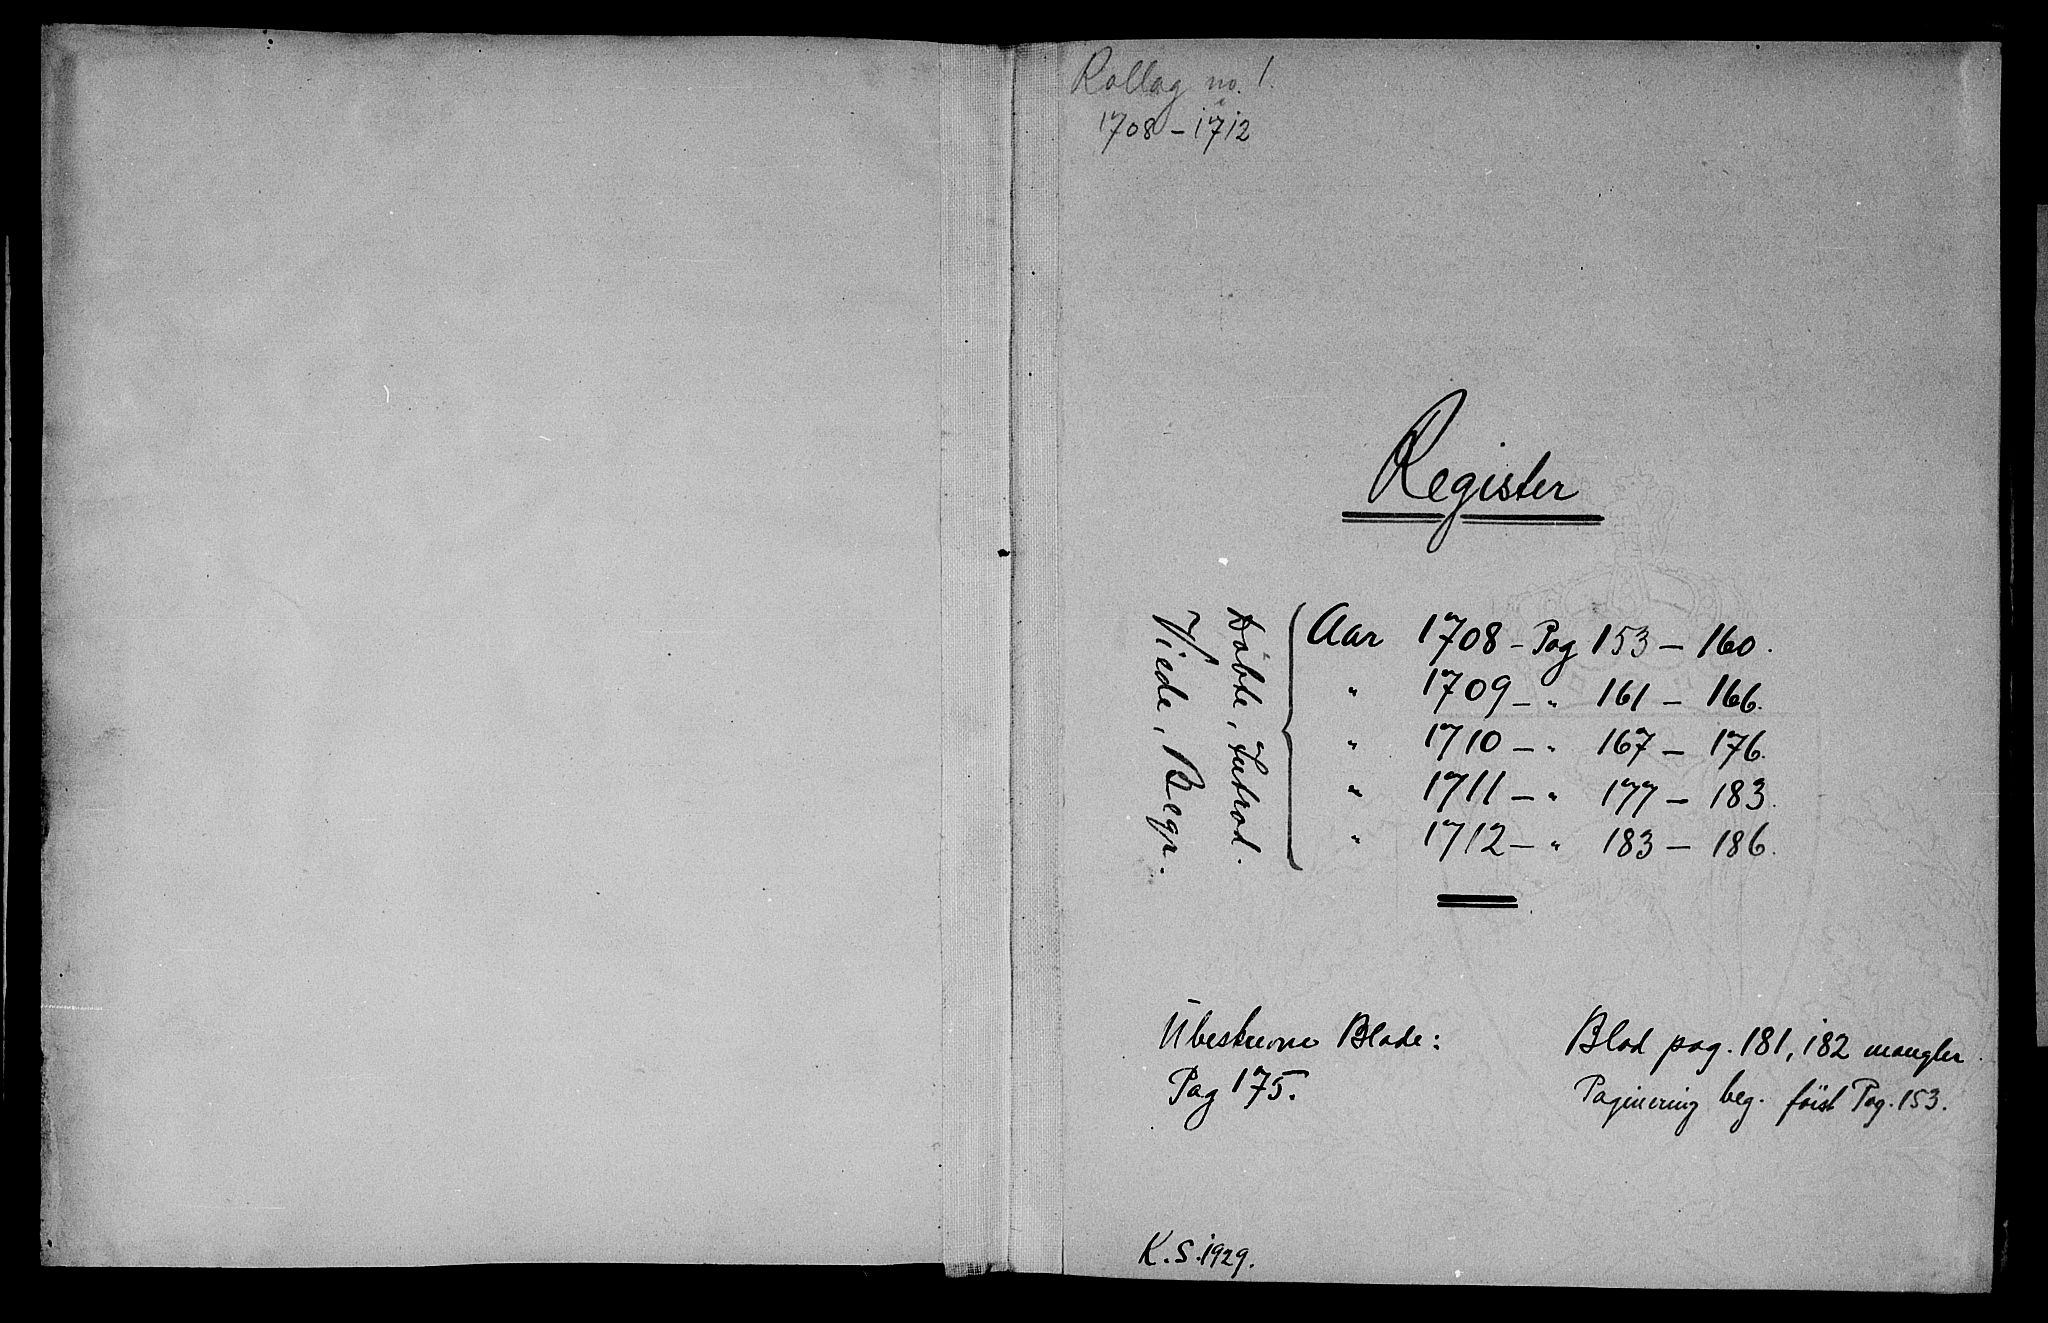 Rollag no. 1.
1708 – 1712
Register
Døbte, Introd.
Viede, Begr.
Aar 1708 – Pag 153 – 160.
" 1709 – " 161 – 166.
" 1710 – " 167 – 176.
" 1711 – " 177 – 183.
" 1712 – " 183 – 186.
Ubeskrevne Blade:
Pag 175.
Blad pag. 181, 182 mangler.
Paginering beg. først Pag. 153.
K. S. 1929.